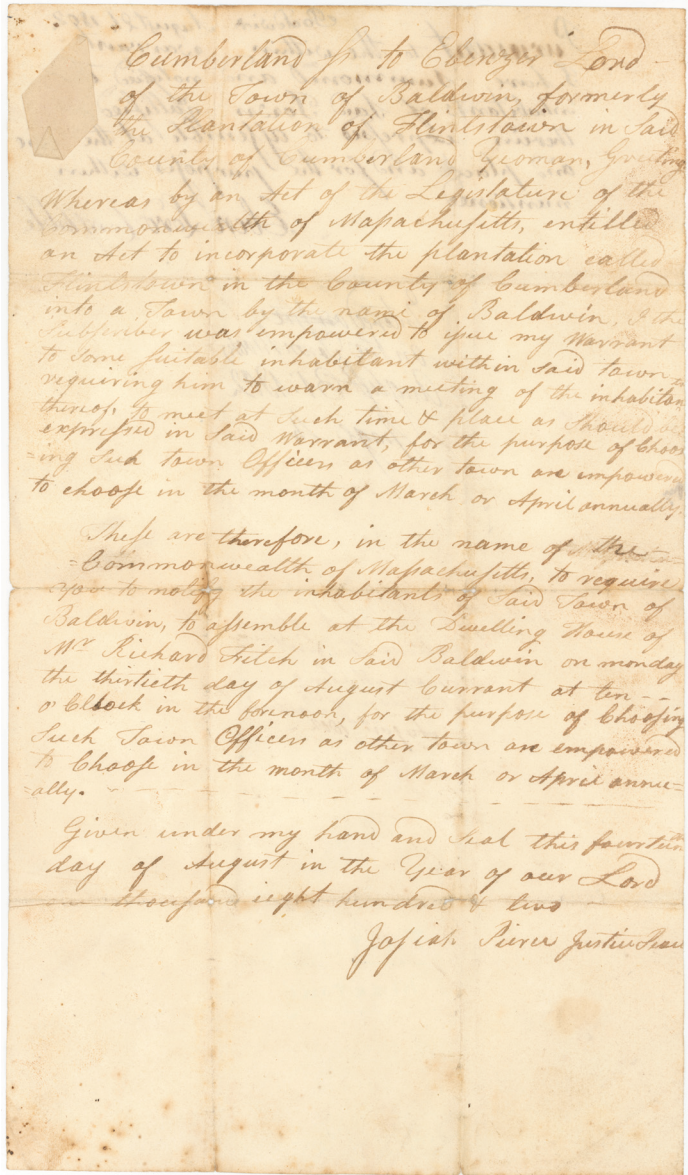 Cumberland ss to Ebenezer Lord
of the Town of Baldwin, formerly
the Plantation of Flintstown in Said
County of Cumberland Yeoman, Greeting
Whereas by an Act of the Legislature of the
Commonwealth of Massachusetts, entitled
an Act to incorporate the plantation called
Flintstown in the County of Cumberland
into a Town by the name of Baldwin, I the
Subscriber was empowered to issue my Warrant
to Some Suitable inhabitant within Said town
requiring him to warn a meeting of the inhabitan
thereof, to meet at Such time & place as Should be
expressed in Said Warrant, for the purpose of Choos
=ing Such town Officers as other town are empowered
to choose in the month of March or April annually.
These are therefore, in the name of the
=Commonwealth of Massachusetts, to require
you to notify the inhabitants of Said Town of
Baldwin, to assemble at the Dwelling House of
Mr Richard Fitch in Said Baldwin on monday
the thirtieth day of August Currant at ten --
o'Clock in the forenoon, for the purpose of Choosing
Such Town Officers as other town are empowered
to Choose in the month of March or April annu=
=ally.
Given under my hand and Seal this fourteen
day of August in the Year of our Lord
one thousand eight hundred & two
Josiah Pierce Justice Peace